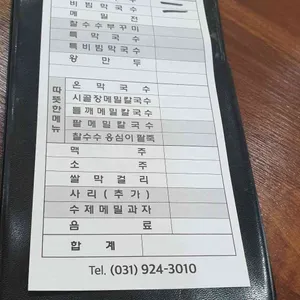 비빔막국수
메밀전
찰수수부꾸미
특막국수
특비빔막국수
왕만두
따뜻한메뉴
온막국수
시골장메밀칼국수
들깨메밀칼국수
팥메밀칼국수
찰수수옹심이팥죽
맥주
소주
쌀막걸리
사리(추가)
수제메밀과자
음료
합계
Tel. (031) 924-3010